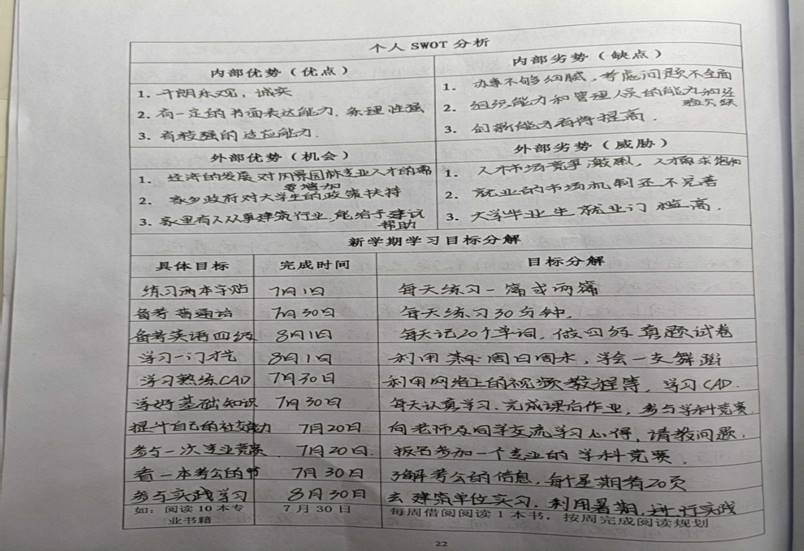 个人SWOT分析
内部优势（优点） 内部劣势（缺点）
1. 开朗乐观，诚实 1. 办事不够细腻，考虑问题不全面
2. 有一定的书面表达能力，条理性强 2. 组织能力和管理人员的能力和经验欠缺
3. 有较强的适应能力. 3. 创新能力有待提高.
外部优势（机会） 外部劣势（威胁）
1. 经济的发展对风景园林专业人才的需要增加 1. 人才市场竞争激烈，人才需求饱和
2. 家乡政府对大学生的政策扶持 2. 就业的市场机制还不完善
3. 家里有人从事建筑行业，能给予建议帮助 3. 大学毕业生就业门槛高.
新学期学习目标分解
具体目标 完成时间 目标分解
练习两本字帖 7月1日 每天练习一篇或两篇
备考普通话 7月30日 每天练习30分钟.
备考英语四级 8月1日 每天记20个单词，做四级真题试卷
学习一门才艺 8月1日 利用周末，学会一支舞蹈
学习熟练CAD 7月30日 利用网络上的视频教程等，学习CAD.
学好基础知识 7月30日 每天认真学习.完成课后作业，参与学科竞赛
提升自己的社交能力 7月20日 向老师及同学交流学习心得，请教问题.
参与一次专业竞赛 7月20日 报名参加一个专业的学科竞赛.
看一本考公的书 7月30日 了解考公的信息，每个星期看20页
参与实践学习 8月30日 去建筑单位实习，利用暑期，进行实践
如：阅读10本专业书籍 7月30日 每周借阅阅读1本书，按周完成阅读规划
22